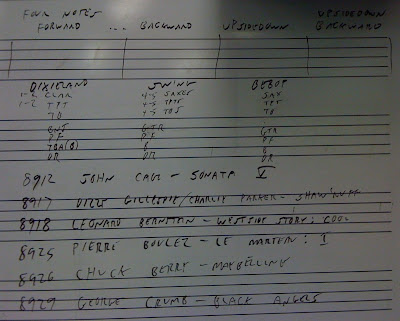 FOUR NOTES UPSIDEDOWN
FORWARD ... BACKWARD UPSIDEDOWN BACKWARD
DIXIELAND SWING BEBOP
1-2 CLAR 4-5 SAXES SAX
1-2 TPT 4-5 TPTS TPT
TB 4-5 TBS TB
BNJ GTR GTR
PF PF PF
TBA(B) B B
DR DR DR
8912 JOHN CAGE - SONATA V
8917 DIZZY GILLESPIE/CHARLIE PARKER - SHAW'NUFF
8918 LEONARD BERNSTEIN - WESTSIDE STORY: COOL
8925 PIERRE BOULEZ - LE MARTEAU: I
8926 CHUCK BERRY - MAYBELLINE
8929 GEORGE CRUMB - BLACK ANGELS